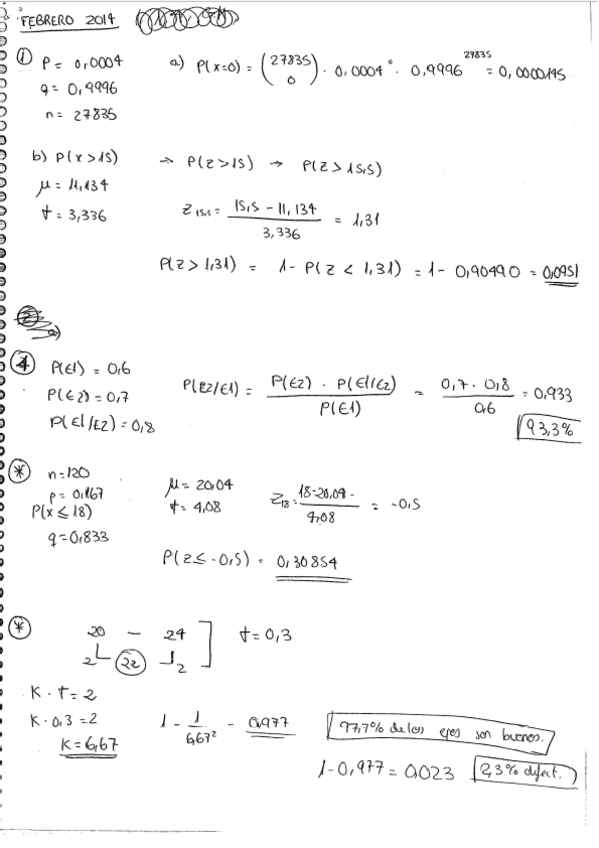 FEBRERO 2014
① P = 0,0004 a) P(x=0) = (27835 0) · 0,0004⁰ · 0,9996^27835 = 0,0000145
q = 0,9996
n = 27835
b) P(x > 15) → P(z > 15) → P(z > 15,5)
μ = 11,134
σ = 3,336 z 15,5 = (15,5 - 11,134) / 3,336 = 1,31
P(z > 1,31) = 1 - P(z < 1,31) = 1 - 0,90490 = 0,0951
a)
④ P(E1) = 0,6
P(E2) = 0,7 P(E2/E1) = P(E2) · P(E1/E2) / P(E1) = 0,7 · 0,8 / 0,6 = 0,933
P(E1/E2) = 0,8 93,3%
* n = 120
p = 0,167 μ = 20,04
P(x ≤ 18) σ = 4,08 Z18 = (18-20,04) / 4,08 = -0,5
q = 0,833
P(z ≤ -0,5) = 0,30854
* 20 — 24 σ = 0,3
2 22 2
K · σ = 2
K · 0,3 = 2 1 - 1/6,67² = 0,977 97,7% de los ejes son buenos.
K = 6,67
1 - 0,977 = 0,023 2,3% defect.